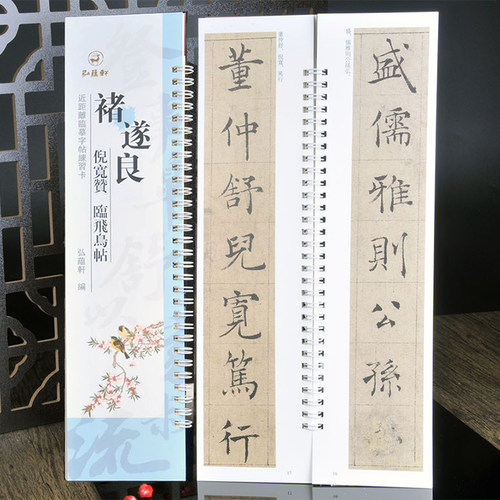 弘蘊軒
褚遂良
倪寬贊 臨飛鳥帖
近距離臨摹字帖練習卡
弘蘊軒 編
董仲舒兒寬篤行
盛儒雅則公孫弘